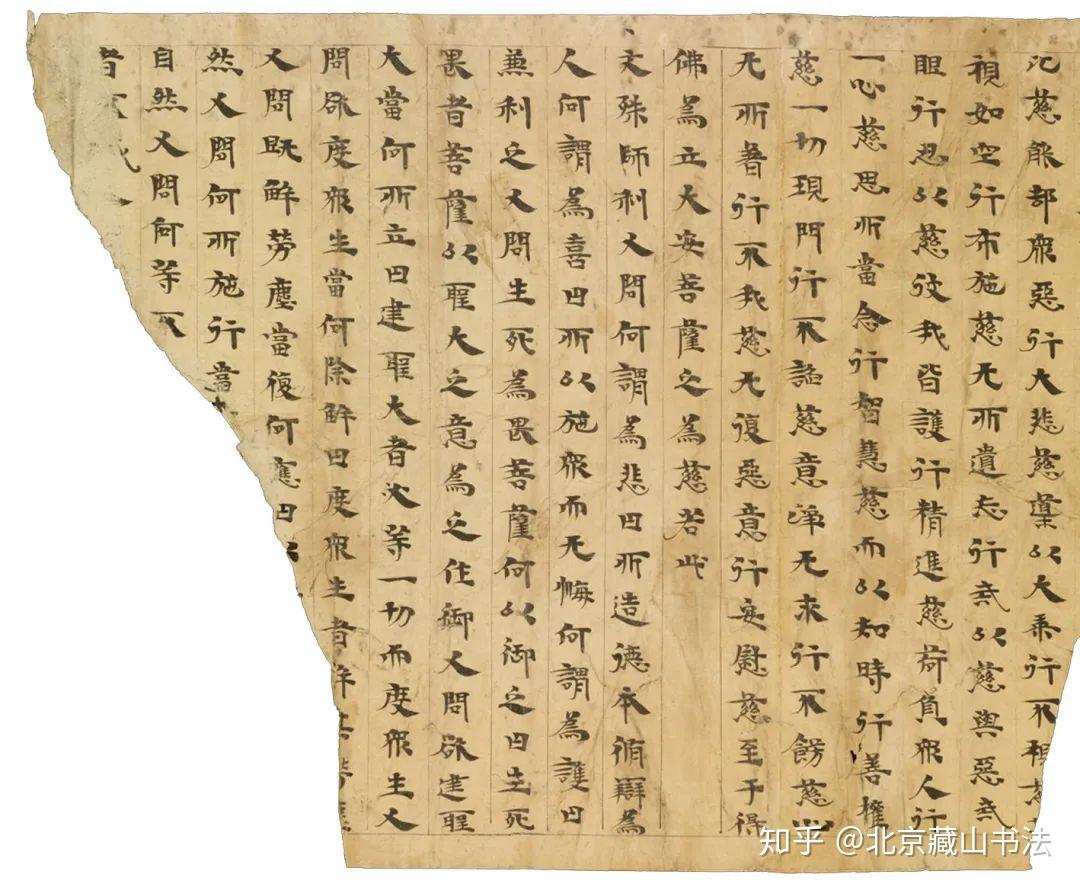 慈能却眾惡行大悲慈導以大乘行不視慈
視如空行布施慈无所遺忘行戒以慈與惡戒
眼行忍以慈彼我皆護行精進慈荷負眾人行
一心慈思所當念行智慧慈而以知時行善權
慈一切現門行不諂慈意淨无求行不餝慈心
无所著行不我慈无復惡意行安慰慈至于得
佛為立大安菩薩之為慈若此
文殊師利又問何謂為悲曰所造德本脩辭為
人何謂為喜曰所以施眾而无悔何謂為護曰
兼利之又問生死為畏菩薩何以御之曰生死
畏者菩薩以聖大之意為之住御又問欲建聖
大當何所立曰建聖大者必等一切而度眾生又
問欲度眾生當何除解曰度眾生者解其勞塵
又問既解勞塵當復何應曰以
然又問何所施行當
自然又問何等不
者
知乎 @北京藏山书法